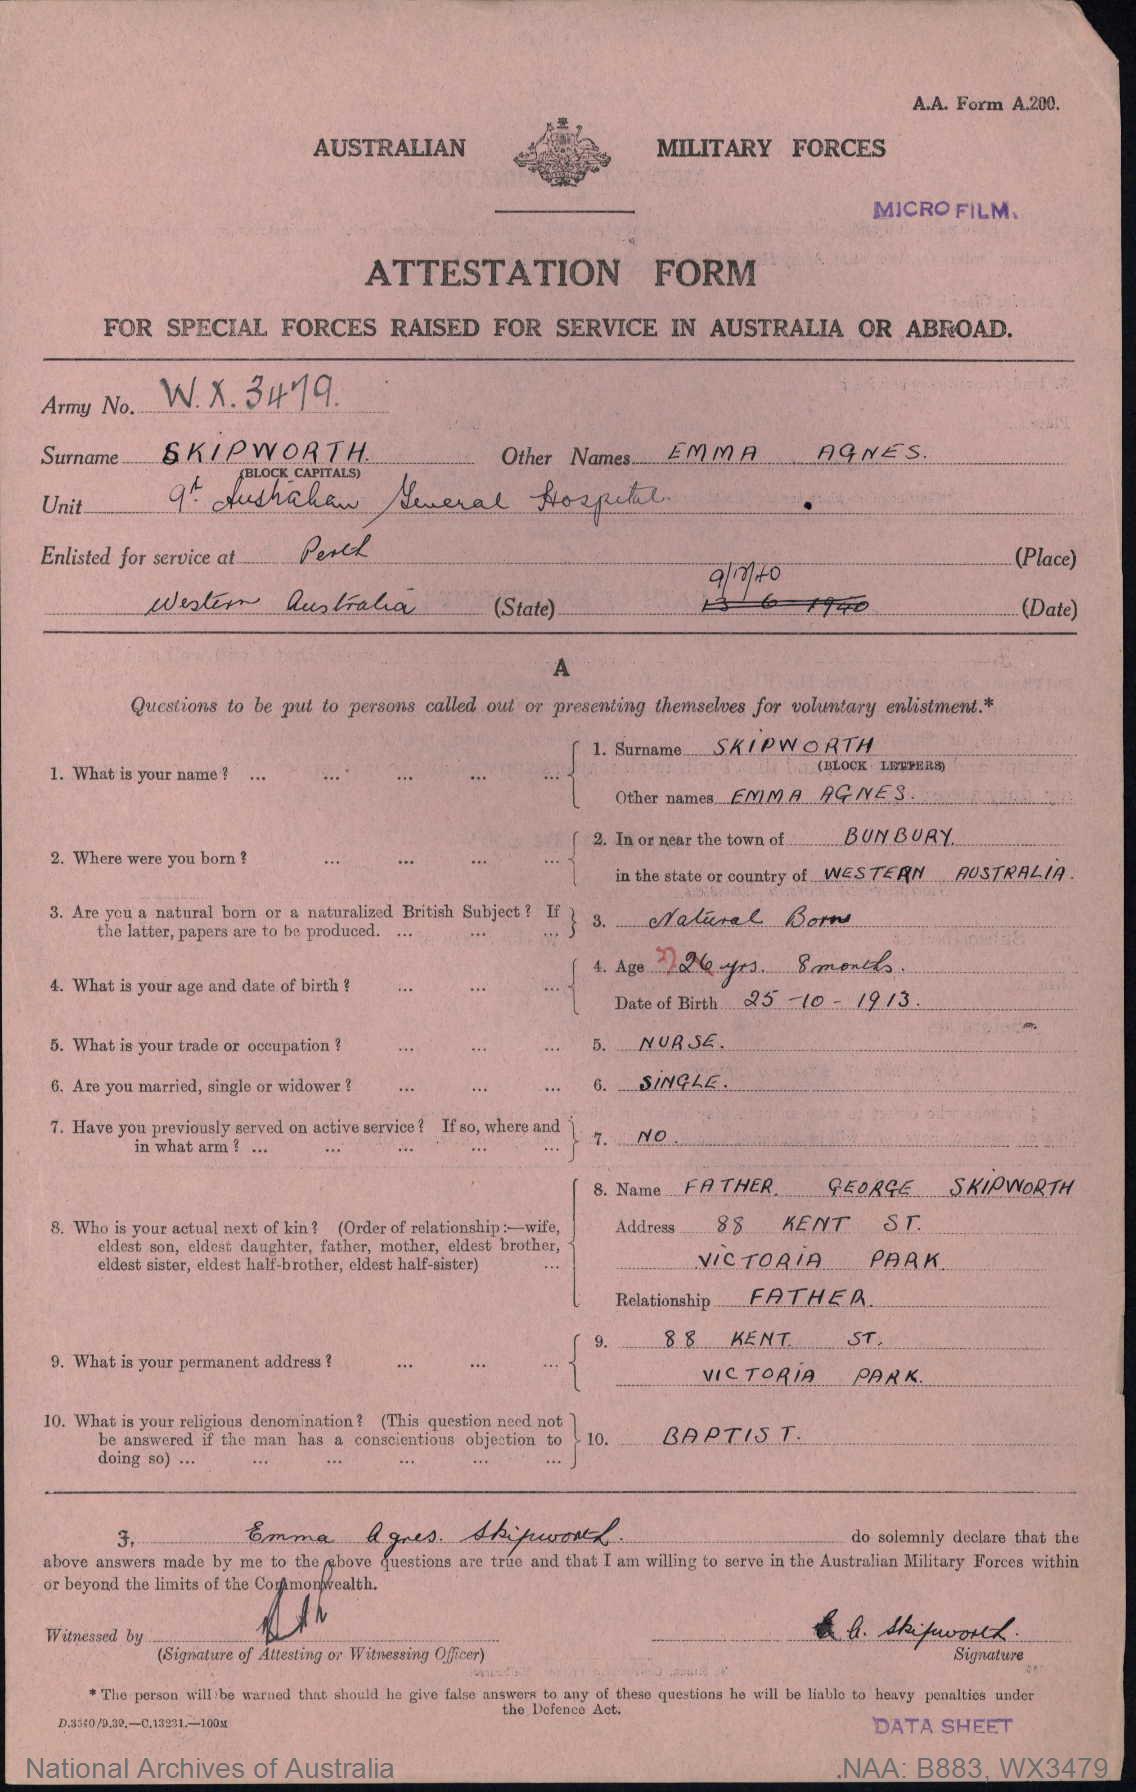 A.A. Form A.200.
AUSTRALIAN MILITARY FORCES
MICROFILM.
ATTESTATION FORM
FOR SPECIAL FORCES RAISED FOR SERVICE IN AUSTRALIA OR ABROAD.
Army No. W.X.3479.
Surname SKIPWORTH. Other Names EMMA AGNES.
(BLOCK CAPITALS)
Unit Australian General Hospital.
Enlisted for service at Perth (Place)
9/7/40
Western Australia (State) 13 6 1940 (Date)
A
Questions to be put to persons called out or presenting themselves for voluntary enlistment.*
1. What is your name? ... ... ... ... ... 1. Surname SKIPWORTH
(BLOCK LETTERS)
Other names EMMA AGNES.
2. Where were you born? ... ... ... ... 2. In or near the town of BUNBURY.
in the state or country of WESTERN AUSTRALIA.
3. Are you a natural born or a naturalized British Subject? If
the latter, papers are to be produced. ... ... ... 3. Natural Born
4. What is your age and date of birth? ... ... ... 4. Age 27 26 yrs. 8 months.
Date of Birth 25-10-1913.
5. What is your trade or occupation? ... ... ... 5. NURSE.
6. Are you married, single or widower? ... ... ... 6. SINGLE.
7. Have you previously served on active service? If so, where and
in what arm? ... ... ... ... ... 7. NO.
8. Name FATHER. GEORGE SKIPWORTH
8. Who is your actual next of kin? (Order of relationship:—wife, Address 88 KENT ST.
eldest son, eldest daughter, father, mother, eldest brother,
eldest sister, eldest half-brother, eldest half-sister) ... VICTORIA PARK
Relationship FATHER.
9. What is your permanent address? ... ... ... 9. 88 KENT. ST.
VICTORIA PARK.
10. What is your religious denomination? (This question need not
be answered if the man has a conscientious objection to 10. BAPTIST.
doing so) ... ... ... ... ... ...
I, Emma Agnes. Skipworth. do solemnly declare that the
above answers made by me to the above questions are true and that I am willing to serve in the Australian Military Forces within
or beyond the limits of the Commonwealth.
Witnessed by E A. Skipworth.
(Signature of Attesting or Witnessing Officer) Signature
* The person will be warned that should he give false answers to any of these questions he will be liable to heavy penalties under
the Defence Act.
D.3540/9.39.—C.13231.—100M
DATA SHEET
National Archives of Australia NAA: B883, WX3479